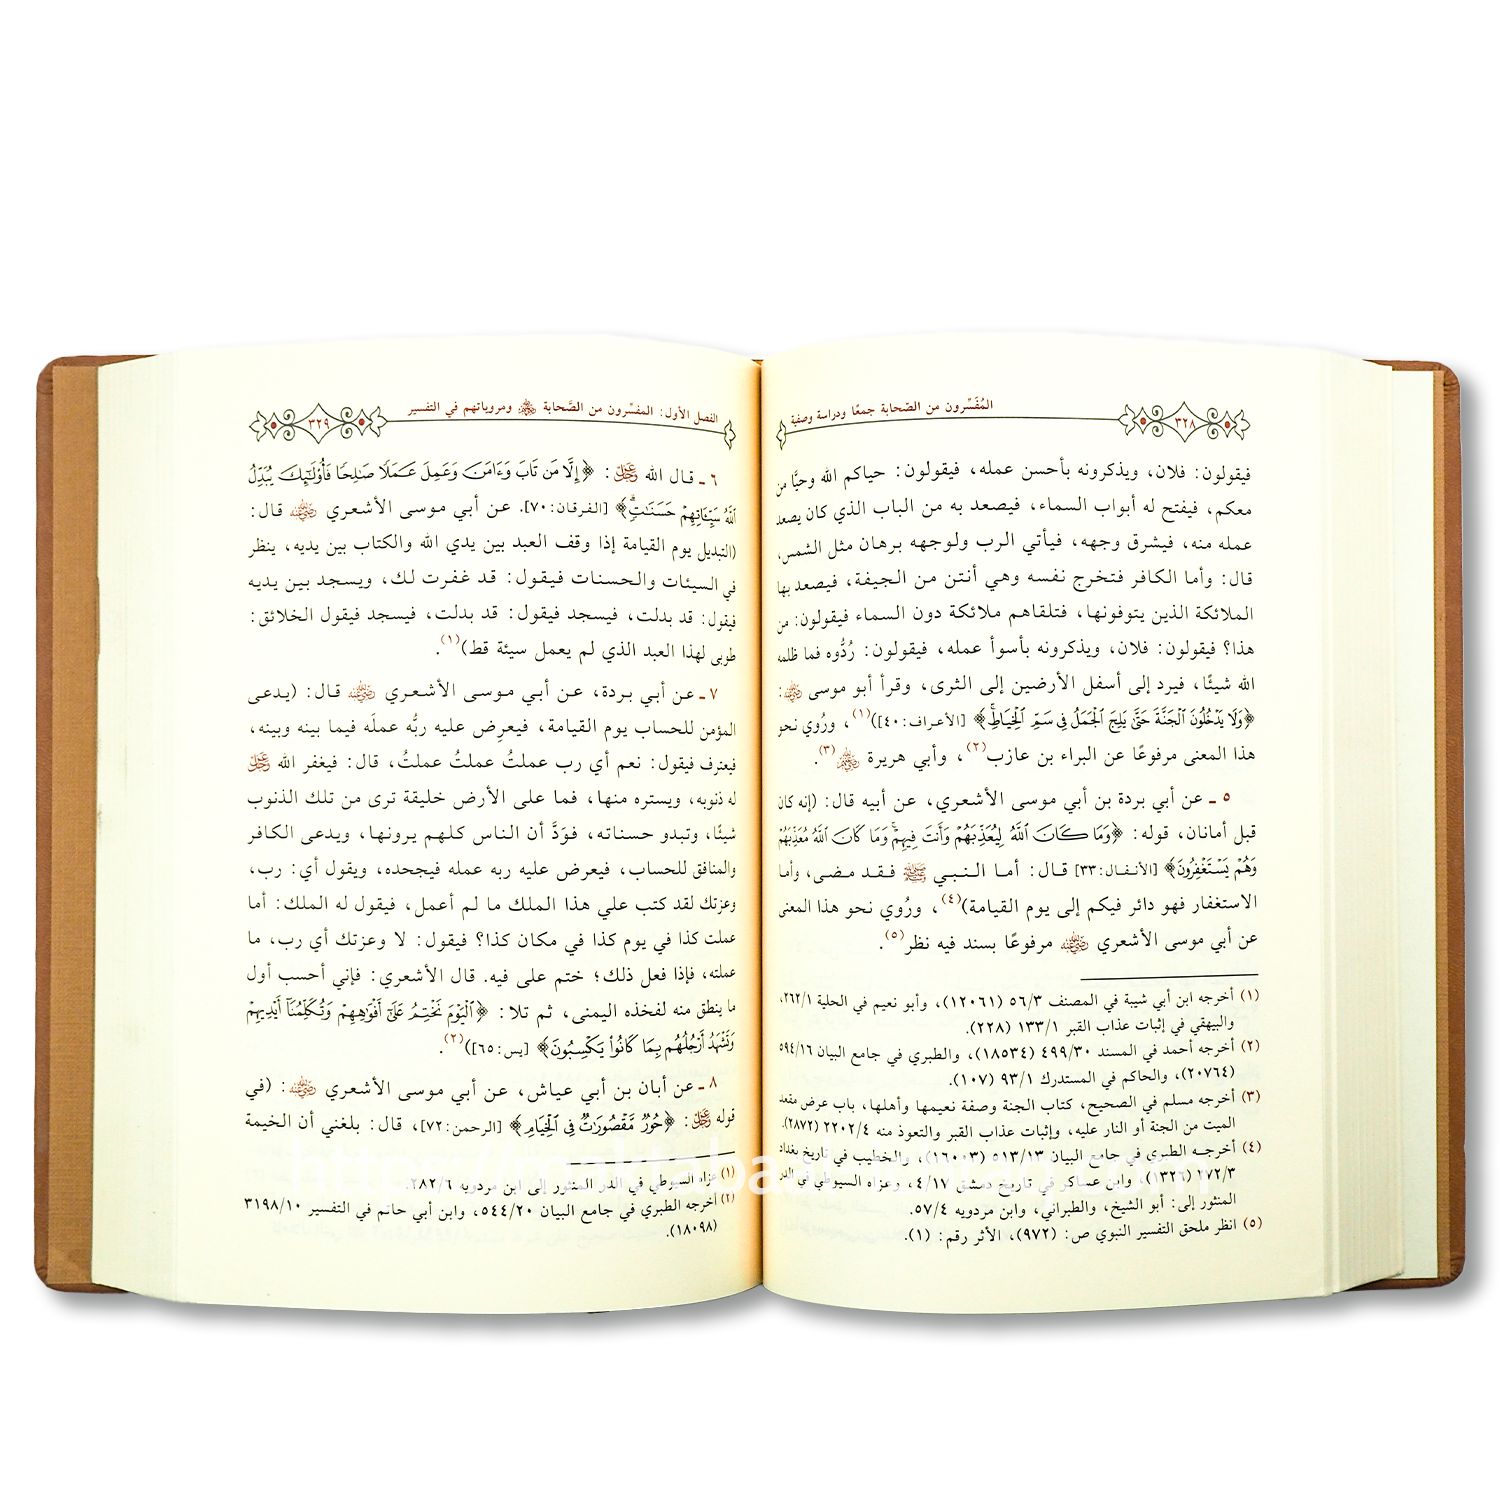 المُفَسِّرون من الصّحابة جمعًا ودراسة وصفية
٣٢٨
فيقولون: فلان، ويذكرونه بأحسن عمله، فيقولون: حياكم الله وحيَّا من
معكم، فيفتح له أبواب السماء، فيصعد به من الباب الذي كان يصعد
عمله منه، فيشرق وجهه، فيأتي الرب ولوجهه برهان مثل الشمس،
قال: وأما الكافر فتخرج نفسه وهي أنتن من الجيفة، فيصعد بها
الملائكة الذين يتوفونها، فتلقاهم ملائكة دون السماء فيقولون: من
هذا؟ فيقولون: فلان، ويذكرونه بأسوأ عمله، فيقولون: رُدُّوه فما ظلمه
الله شيئًا، فيرد إلى أسفل الأرضين إلى الثرى، وقرأ أبو موسى ﵁:
﴿وَلَا يَدۡخُلُونَ ٱلۡجَنَّةَ حَتَّىٰ يَلِجَ ٱلۡجَمَلُ فِي سَمِّ ٱلۡخِيَاطِۚ﴾ [الأعراف: ٤٠])(١)، ورُوي نحو
هذا المعنى مرفوعًا عن البراء بن عازب(٢)، وأبي هريرة ﵄(٣).
٥ ـ عن أبي بردة بن أبي موسى الأشعري، عن أبيه قال: (إنه كان
قبل أمانان، قوله: ﴿وَمَا كَانَ ٱللَّهُ لِيُعَذِّبَهُمۡ وَأَنتَ فِيهِمۡۚ وَمَا كَانَ ٱللَّهُ مُعَذِّبَهُمۡ
وَهُمۡ يَسۡتَغۡفِرُونَ﴾ [الأنفال: ٣٣] قال: أما النبي ﷺ فقد مضى، وأما
الاستغفار فهو دائر فيكم إلى يوم القيامة)(٤)، ورُوي نحو هذا المعنى
عن أبي موسى الأشعري ﵁ مرفوعًا بسند فيه نظر(٥).
(١) أخرجه ابن أبي شيبة في المصنف ٥٦/٣ (١٢٠٦١)، وأبو نعيم في الحلية ٢٦٢/١،
والبيهقي في إثبات عذاب القبر ١٣٣/١ (٢٢٨).
(٢) أخرجه أحمد في المسند ٤٩٩/٣٠ (١٨٥٣٤)، والطبري في جامع البيان ٥٩٤/١٦
(٢٠٧٦٤)، والحاكم في المستدرك ٩٣/١ (١٠٧).
(٣) أخرجه مسلم في الصحيح، كتاب الجنة وصفة نعيمها وأهلها، باب عرض مقعد
الميت من الجنة أو النار عليه، وإثبات عذاب القبر والتعوذ منه ٢٢٠٢/٤ (٢٨٧٢).
(٤) أخرجه الطبري في جامع البيان ٥١٣/١٣ (١٦٠٠٣)، والخطيب في تاريخ بغداد
٢٧٢/٣ (١٣٢٦)، وابن عساكر في تاريخ دمشق ٤/١٧، وعزاه السيوطي في الدر
المنثور إلى: أبو الشيخ، والطبراني، وابن مردويه ٥٧/٤.
(٥) انظر ملحق التفسير النبوي ص: (٩٧٢)، الأثر رقم: (١).
الفصل الأول: المفسِّرون من الصَّحابة ﵃ ومروياتهم في التفسير
٣٢٩
٦ ـ قال الله ﷿: ﴿إِلَّا مَن تَابَ وَءَامَنَ وَعَمِلَ عَمَلٗا صَٰلِحٗا فَأُوْلَٰٓئِكَ يُبَدِّلُ
ٱللَّهُ سَيِّـَٔاتِهِمۡ حَسَنَٰتٖۗ﴾ [الفرقان: ٧٠]. عن أبي موسى الأشعري ﵁ قال:
(التبديل يوم القيامة إذا وقف العبد بين يدي الله والكتاب بين يديه، ينظر
في السيئات والحسنات فيقول: قد غفرت لك، ويسجد بين يديه
فيقول: قد بدلت، فيسجد فيقول: قد بدلت، فيسجد فيقول الخلائق:
طوبى لهذا العبد الذي لم يعمل سيئة قط)(١).
٧ ـ عن أبي بردة، عن أبي موسى الأشعري ﵁ قال: (يدعى
المؤمن للحساب يوم القيامة، فيعرِض عليه ربُّه عملَه فيما بينه وبينه،
فيعترف فيقول: نعم أي رب عملتُ عملتُ عملتُ، قال: فيغفر الله ﷿
له ذنوبه، ويستره منها، فما على الأرض خليقة ترى من تلك الذنوب
شيئًا، وتبدو حسناته، فوَدَّ أن الناس كلهم يرونها، ويدعى الكافر
والمنافق للحساب، فيعرض عليه ربه عمله فيجحده، ويقول أي: رب،
وعزتك لقد كتب علي هذا الملك ما لم أعمل، فيقول له الملك: أما
عملت كذا في يوم كذا في مكان كذا؟ فيقول: لا وعزتك أي رب، ما
عملته، فإذا فعل ذلك؛ ختم على فيه. قال الأشعري: فإني أحسب أول
ما ينطق منه لفخذه اليمنى، ثم تلا: ﴿ٱلۡيَوۡمَ نَخۡتِمُ عَلَىٰٓ أَفۡوَٰهِهِمۡ وَتُكَلِّمُنَآ أَيۡدِيهِمۡ
وَتَشۡهَدُ أَرۡجُلُهُم بِمَا كَانُواْ يَكۡسِبُونَ﴾ [يس: ٦٥])(٢).
٨ ـ عن أبان بن أبي عياش، عن أبي موسى الأشعري ﵁: (في
قوله ﷿: ﴿حُورٞ مَّقۡصُورَٰتٞ فِي ٱلۡخِيَامِ﴾ [الرحمن: ٧٢]، قال: بلغني أن الخيمة
(١) عزاه السيوطي في الدر المنثور إلى ابن مردويه ٢٨٢/٦.
(٢) أخرجه الطبري في جامع البيان ٥٤٤/٢٠، وابن أبي حاتم في التفسير ٣١٩٨/١٠
(١٨٠٩٨).